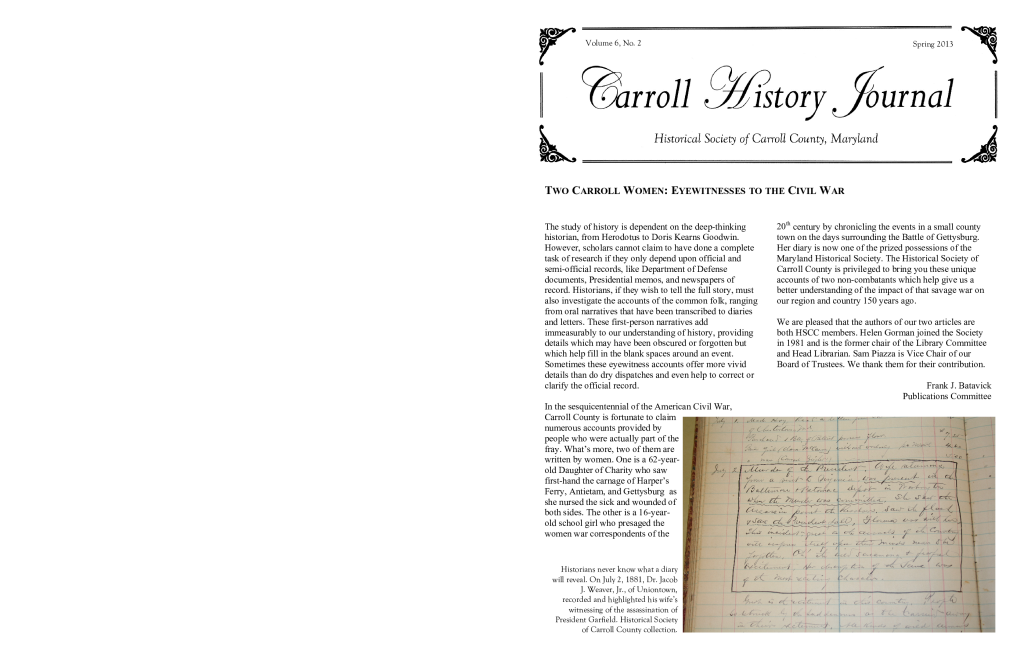 Volume 6, No. 2
Spring 2013
Carroll History Journal
Historical Society of Carroll County, Maryland
TWO CARROLL WOMEN: EYEWITNESSES TO THE CIVIL WAR
The study of history is dependent on the deep-thinking
historian, from Herodotus to Doris Kearns Goodwin.
However, scholars cannot claim to have done a complete
task of research if they only depend upon official and
semi-official records, like Department of Defense
documents, Presidential memos, and newspapers of
record. Historians, if they wish to tell the full story, must
also investigate the accounts of the common folk, ranging
from oral narratives that have been transcribed to diaries
and letters. These first-person narratives add
immeasurably to our understanding of history, providing
details which may have been obscured or forgotten but
which help fill in the blank spaces around an event.
Sometimes these eyewitness accounts offer more vivid
details than do dry dispatches and even help to correct or
clarify the official record.
In the sesquicentennial of the American Civil War,
Carroll County is fortunate to claim
numerous accounts provided by
people who were actually part of the
fray. What's more, two of them are
written by women. One is a 62-year-
old Daughter of Charity who saw
first-hand the carnage of Harper's
Ferry, Antietam, and Gettysburg as
she nursed the sick and wounded of
both sides. The other is a 16-year-
old school girl who presaged the
women war correspondents of the
20th century by chronicling the events in a small county
town on the days surrounding the Battle of Gettysburg.
Her diary is now one of the prized possessions of the
Maryland Historical Society. The Historical Society of
Carroll County is privileged to bring you these unique
accounts of two non-combatants which help give us a
better understanding of the impact of that savage war on
our region and country 150 years ago.
We are pleased that the authors of our two articles are
both HSCC members. Helen Gorman joined the Society
in 1981 and is the former chair of the Library Committee
and Head Librarian. Sam Piazza is Vice Chair of our
Board of Trustees. We thank them for their contribution.
Frank J. Batavick
Publications Committee
Historians never know what a diary
will reveal. On July 2, 1881, Dr. Jacob
J. Weaver, Jr., of Uniontown,
recorded and highlighted his wife's
witnessing of the assassination of
President Garfield. Historical Society
of Carroll County collection.
July 2
Murder of the President.